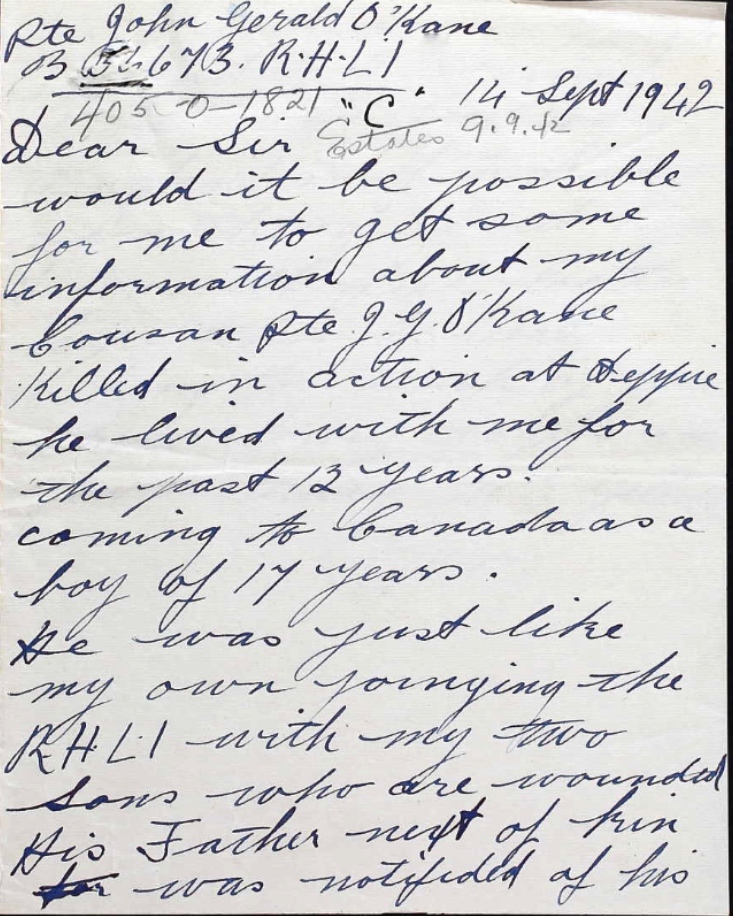 Pte John Gerald O'Kane
B 673. R.H.L.I
405-0-1821 "C" 14 Sept 1942
Dear Sir Estates 9.9.42
would it be possible
for me to get some
information about my
Cousan Pte J.G. O'Kane
Killed in action at Deppie
he lived with me for
the past 13 years.
coming to Canada as a
boy of 17 years.
He was just like
my own joinging the
R.H.L.I with my two
sons who are wounded
His Father next of kin
was notifided of his